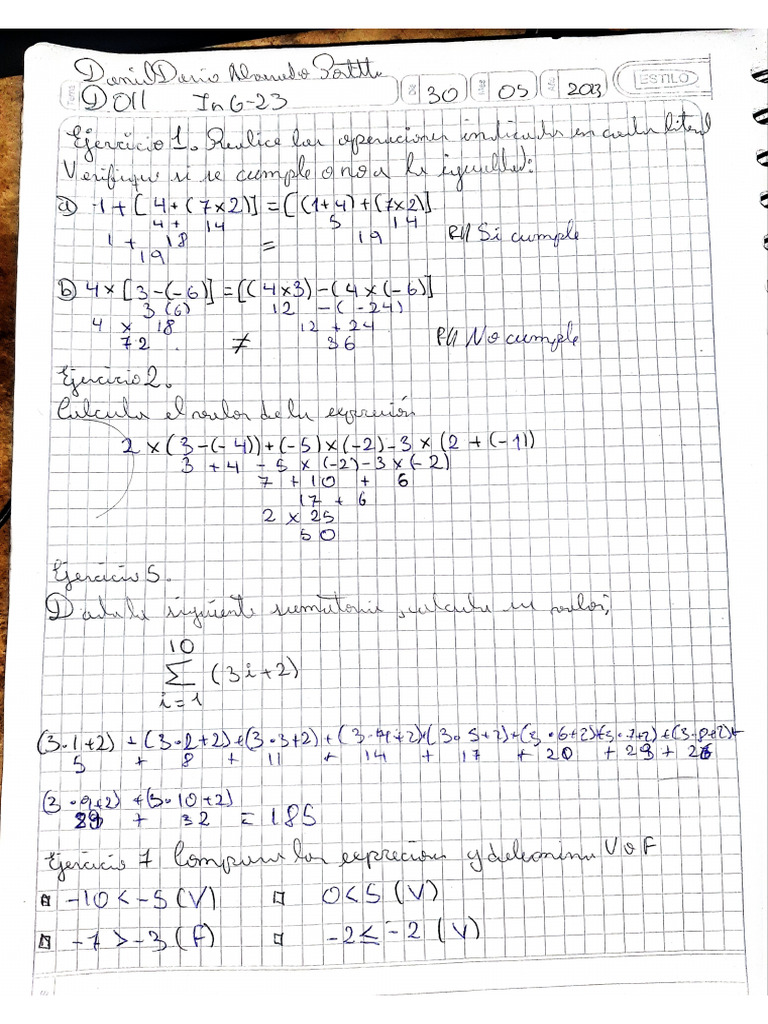 Daniel Dario Alvarado
D.011 InG-23 Día 30 Mes 05 Año 2023 ESTILO
Ejercicio 1. Realice las operaciones indicadas en cada literal
Verifique si se cumple o no a la igualdad:
a) -1+[4+(7×2)]=[(1+4)+(7×2)]
4+ 14 5 14
1 + 18 = 19 R// Si cumple
19
b) 4×[3-(-6)]=[(4×3)-(4×(-6)]
3 (6) 12 -(-24)
4 × 18 12 + 24
72 ≠ 36 R// No cumple
Ejercicio 2.
Calcula el valor de la expresión
2×(3-(-4))+(-5)×(-2)-3×(2+(-1))
3 +4 -5 ×(-2)-3×(-2)
7 +10 + 6
17 + 6
2 × 25
50
Ejercicio 5.
Dada la siguiente sumatoria, calcula su valor;
10
∑ (3i+2)
i=1
(3·1+2) +(3·2+2)+(3·3+2)+(3·4+2)+(3·5+2)+(3·6+2)+(3·7+2)+(3·8+2)+
5 + 8 + 11 + 14 + 17 + 20 + 23 + 26
(3·9+2) +(3·10+2)
29 + 32 = 185
Ejercicio 7 Compara las expreciones y determina V o F
-10<-5(V) 0<5(V)
-7>-3(F) -2≤-2(V)